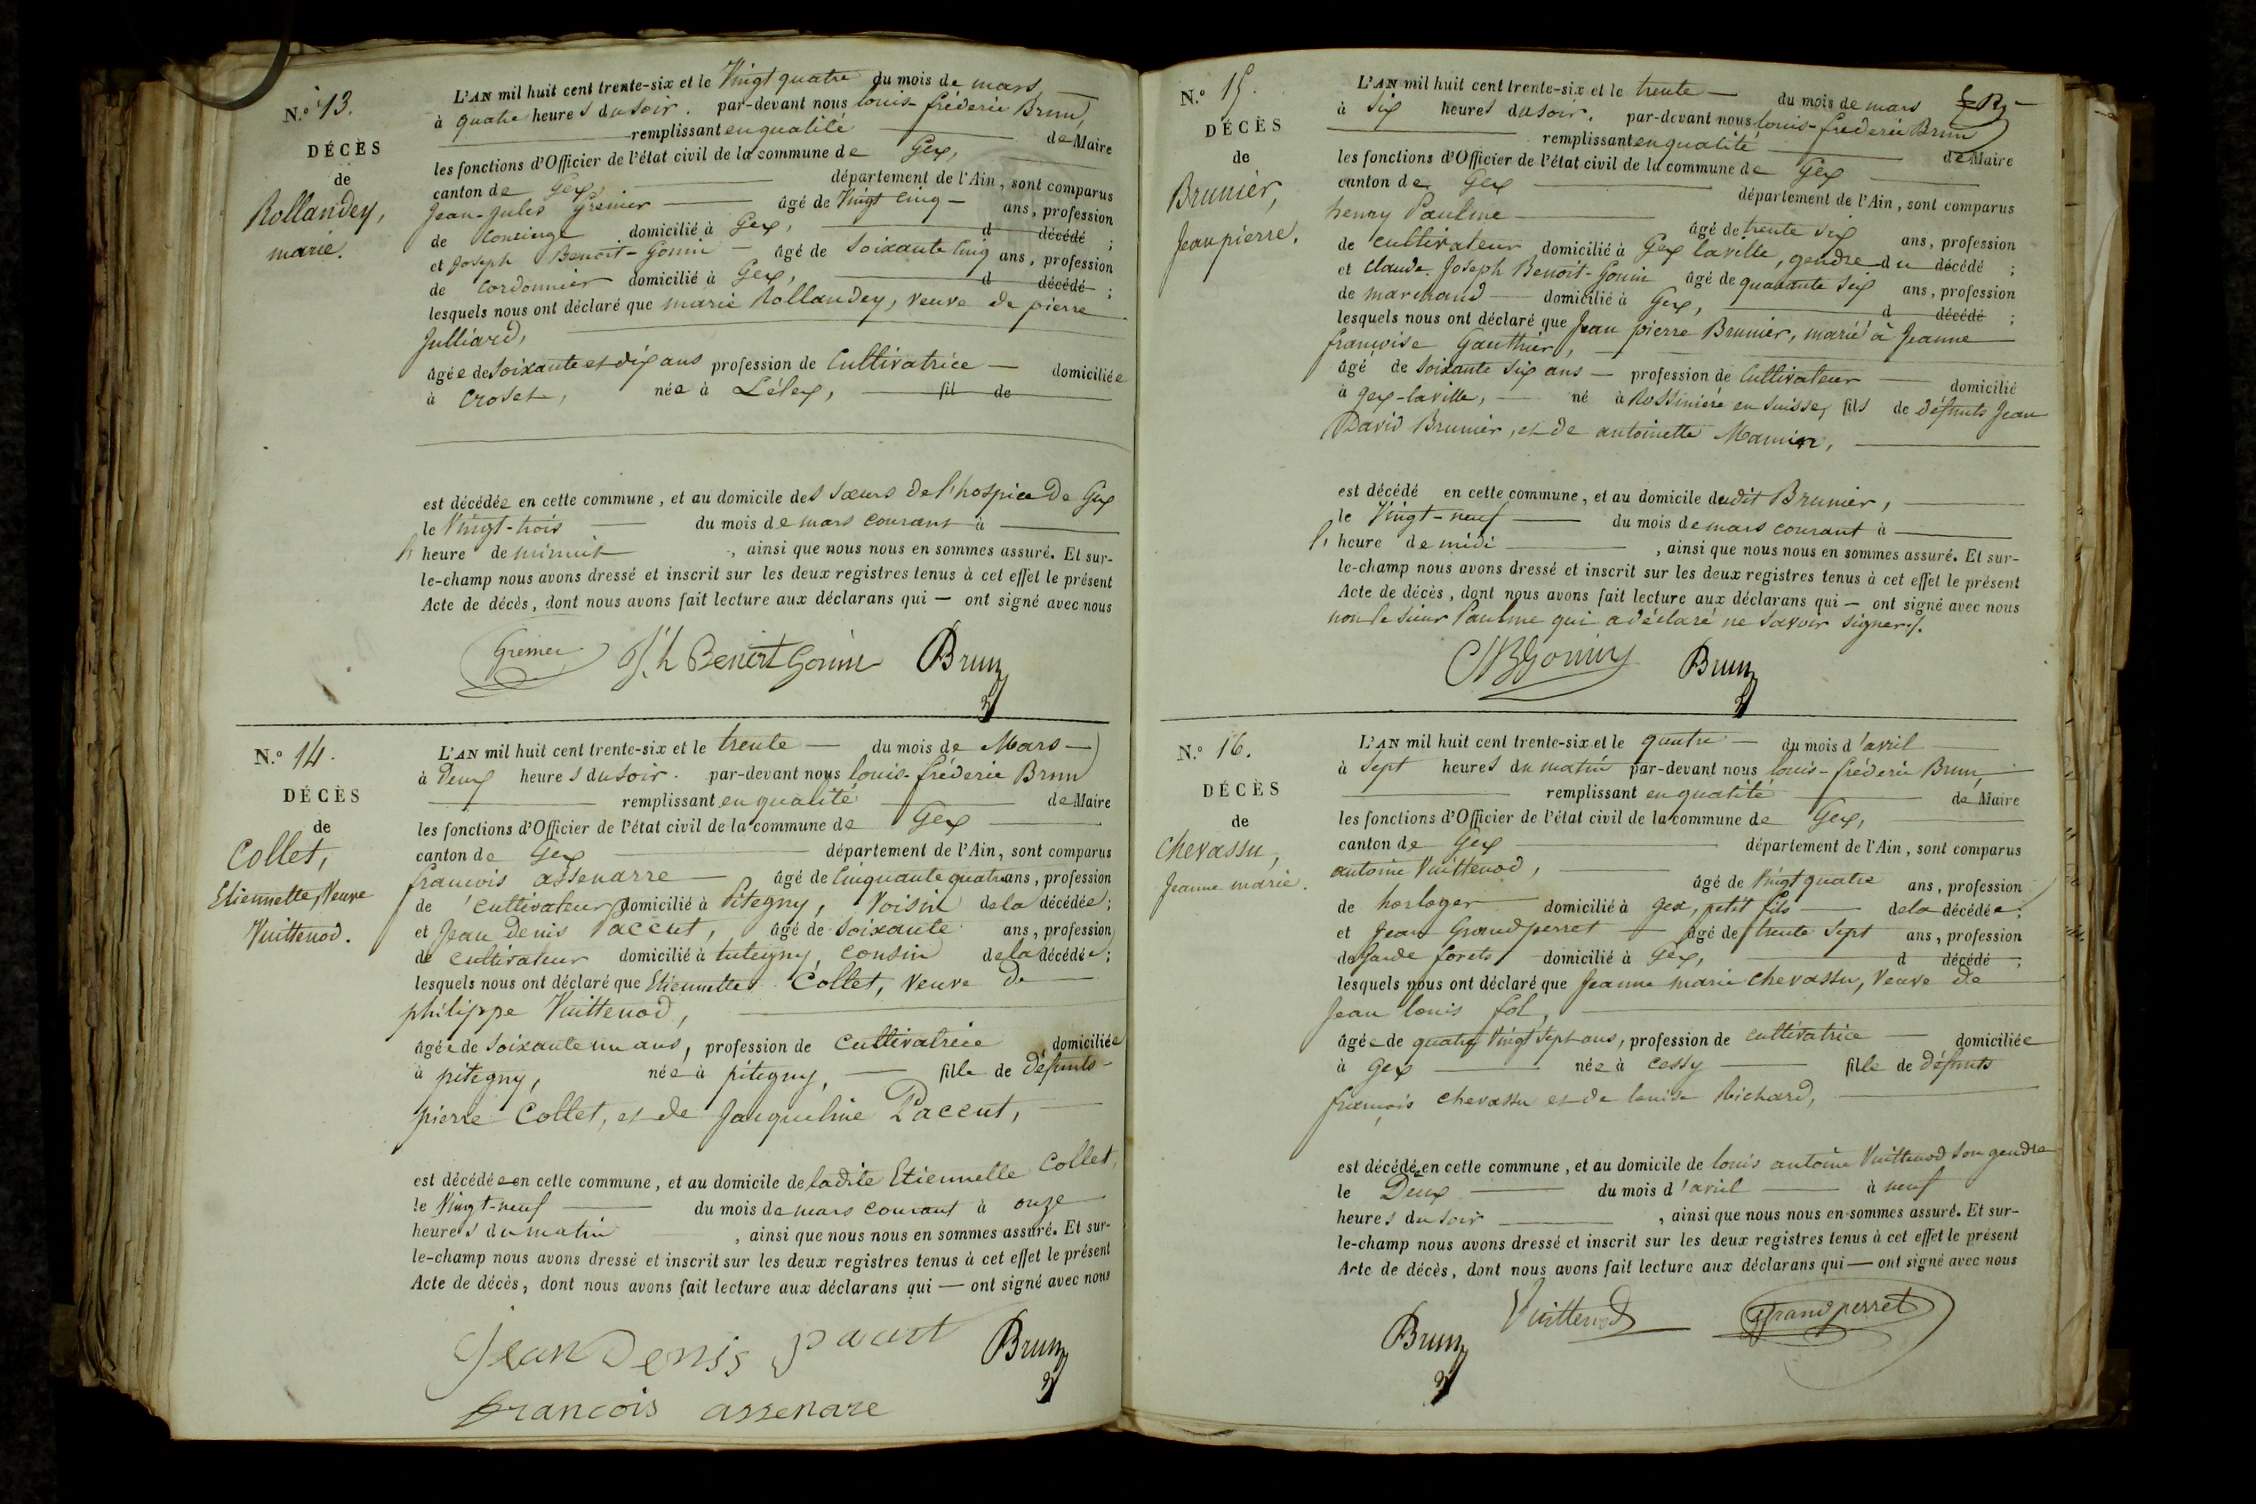 N.º 13.
DÉCÈS
de
Rollandey,
marie.
L'AN mil huit cent trente-six et le Vingt quatre du mois de mars
à quatre heures du soir. par-devant nous louis-fréderic Brun,
remplissant en qualité de Maire
les fonctions d'Officier de l'état civil de la commune de Gex,
canton de Gex, département de l'Ain, sont comparus
Jean-Jules Grenier âgé de Vingt cinq ans, profession
de concierge domicilié à Gex, d décédé ;
et Joseph Benoit-Gonin âgé de soixante cinq ans, profession
de cordonnier domicilié à Gex, d décédé ;
lesquels nous ont déclaré que marie Rollandey, veuve de pierre
Julliard,
âgée de soixante et dix ans profession de Cultivatrice domiciliée
à Croset, née à Lélex, fil de
est décédée en cette commune, et au domicile des sœurs de l'hospice de Gex
le Vingt-trois du mois de mars courant à
l' heure de minuit, ainsi que nous nous en sommes assuré. Et sur-
le-champ nous avons dressé et inscrit sur les deux registres tenus à cet effet le présent
Acte de décès, dont nous avons fait lecture aux déclarans qui — ont signé avec nous
Grenier Jh Benoit Gonin Brun
N.º 14.
DÉCÈS
de
Collet,
Etiennette, Veuve
Vuittenod.
L'AN mil huit cent trente-six et le trente du mois de Mars
à Deux heures du soir. par-devant nous louis-fréderic Brun
remplissant en qualité de Maire
les fonctions d'Officier de l'état civil de la commune de Gex
canton de Gex département de l'Ain, sont comparus
françois assenarre âgé de Cinquante quatre ans, profession
de cultivateur domicilié à Pitegny, Voisin de la décédée ;
et Jean Denis Paccut, âgé de soixante ans, profession
de cultivateur domicilié à tutegny, cousin de la décédée ;
lesquels nous ont déclaré que Etiennette Collet, Veuve de
philippe Vuittenod,
âgée de soixante un ans, profession de Cultivatrice domiciliée
à pitegny, née à pitegny, fille de défunts
pierre Collet, et de Jacqueline Paccut,
est décédée en cette commune, et au domicile de ladite Etiennette Collet,
le Vingt-neuf du mois de mars courant à onze
heures du matin, ainsi que nous nous en sommes assuré. Et sur-
le-champ nous avons dressé et inscrit sur les deux registres tenus à cet effet le présent
Acte de décès, dont nous avons fait lecture aux déclarans qui — ont signé avec nous
Jean Denis pacut Brun
francois assenare
N.º 15.
DÉCÈS
de
Brunier,
Jean pierre.
L'AN mil huit cent trente-six et le trente du mois de mars
à six heures du soir. par-devant nous louis-fréderic Brun
remplissant en qualité de Maire
les fonctions d'Officier de l'état civil de la commune de Gex
canton de Gex département de l'Ain, sont comparus
henry Pauline âgé de trente six ans, profession
de cultivateur domicilié à Gex laville, gendre du décédé ;
et Claude Joseph Benoit-Gonin âgé de quarante six ans, profession
de marchand domicilié à Gex, d décédé ;
lesquels nous ont déclaré que Jean pierre Brunier, marié à Jeanne
françoise Gauthier,
âgé de soixante six ans profession de Cultivateur domicilié
à gex-laville, né à Rossinière en suisse, fils de défunts Jean
David Brunier, et de antoinette
est décédé en cette commune, et au domicile dudit Brunier,
le Vingt-neuf du mois de mars courant à
l' heure de midi, ainsi que nous nous en sommes assuré. Et sur-
le-champ nous avons dressé et inscrit sur les deux registres tenus à cet effet le présent
Acte de décès, dont nous avons fait lecture aux déclarans qui — ont signé avec nous
non le sieur Pauline qui a déclaré ne savoir signer ./.
Brun
N.º 16.
DÉCÈS
de
Chevassu,
Jeanne marie.
L'AN mil huit cent trente-six et le quatre du mois d'avril
à sept heures du matin par-devant nous louis-fréderic Brun,
remplissant en qualité de Maire
les fonctions d'Officier de l'état civil de la commune de Gex,
canton de Gex département de l'Ain, sont comparus
antoine Vuittenod, âgé de Vingt quatre ans, profession
de horloger domicilié à gex, petit fils de la décédée ;
et Jean Grandperret âgé de trente sept ans, profession
de garde forets domicilié à Gex, d décédé ;
lesquels nous ont déclaré que Jeanne marie chevassu, Veuve de
Jean louis fol,
âgée de quatre Vingt sept ans, profession de cultivatrice domiciliée
à Gex née à cessy fille de défunts
françois chevassu et de louise Richard,
est décédée en cette commune, et au domicile de louis antoine Vuittenod son gendre
le Deux du mois d'avril à neuf
heures du soir, ainsi que nous nous en sommes assuré. Et sur-
le-champ nous avons dressé et inscrit sur les deux registres tenus à cet effet le présent
Acte de décès, dont nous avons fait lecture aux déclarans qui — ont signé avec nous
Brun Vuittenod Grandperret